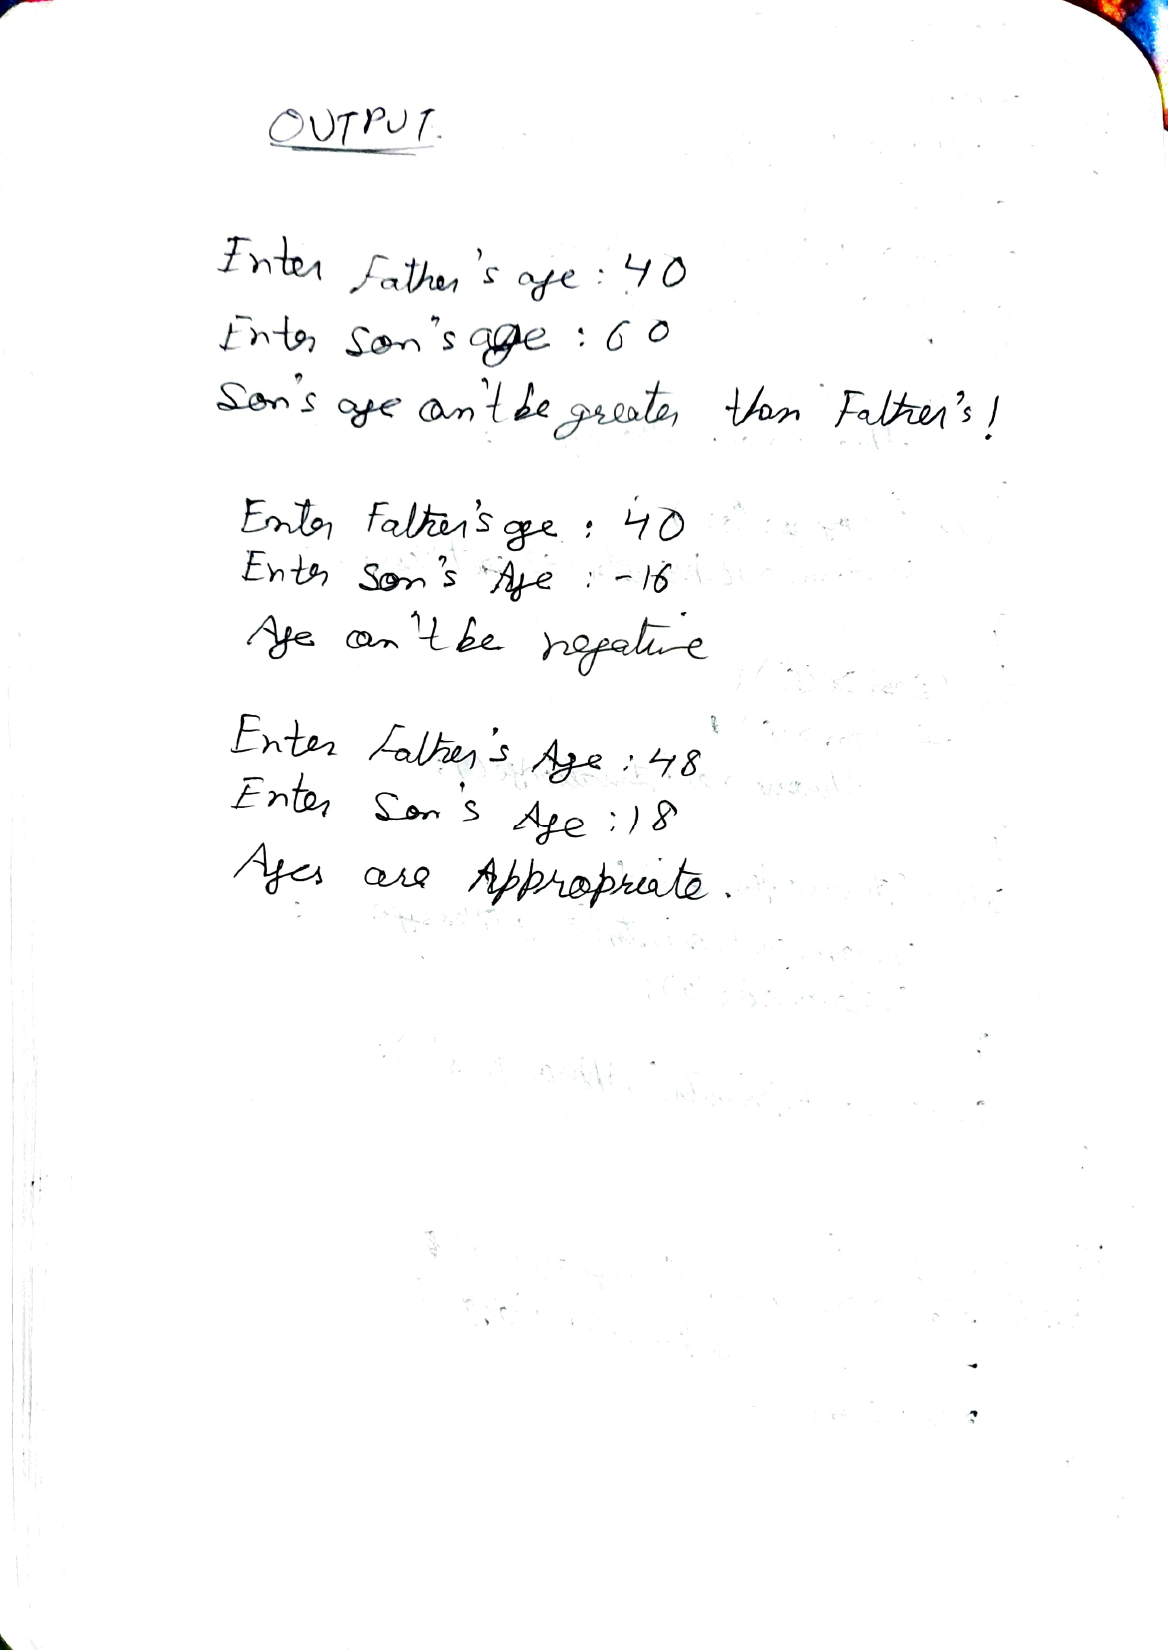 OUTPUT.
Enter Father's age : 40
Enter Son's age : 60
Son's age can't be greater than Father's!
Enter Father's age : 40
Enter Son's Age : -16
Age can't be negative
Enter Father's Age : 48
Enter Son's Age : 18
Ages are Appropriate.